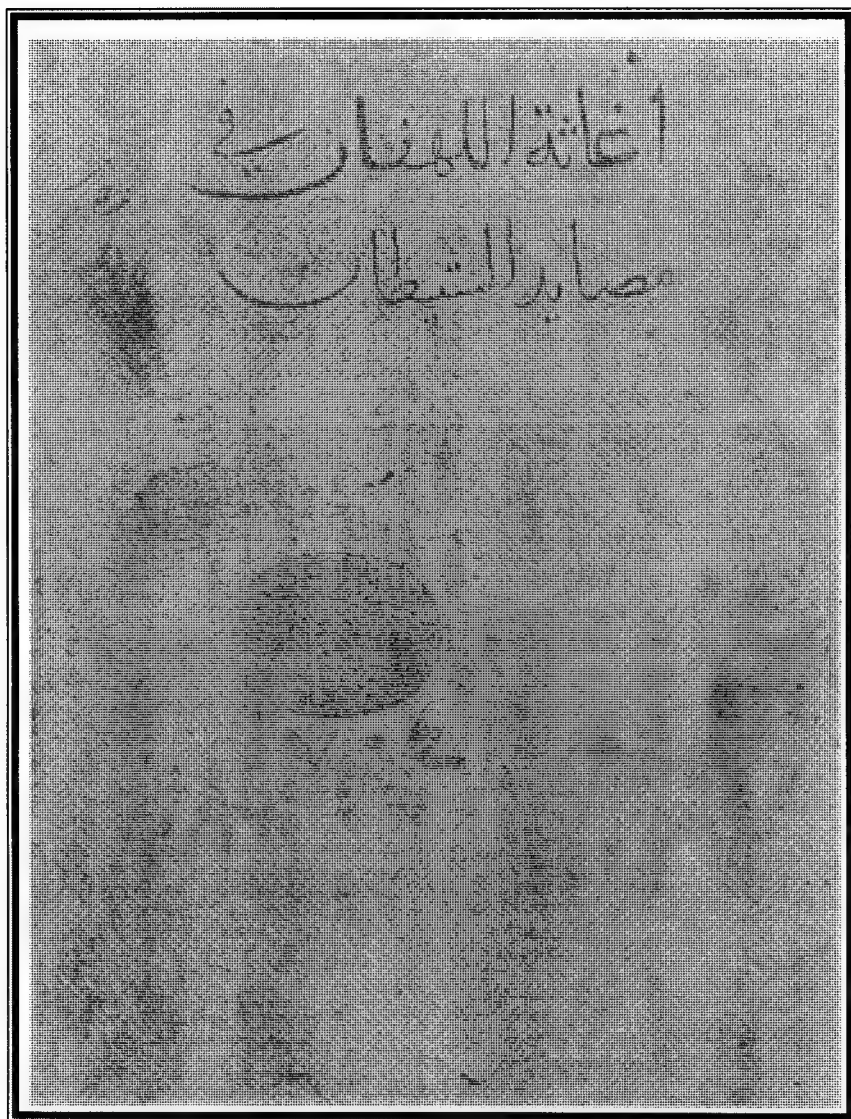 اغاثة اللهفان في
مصايد الشيطان